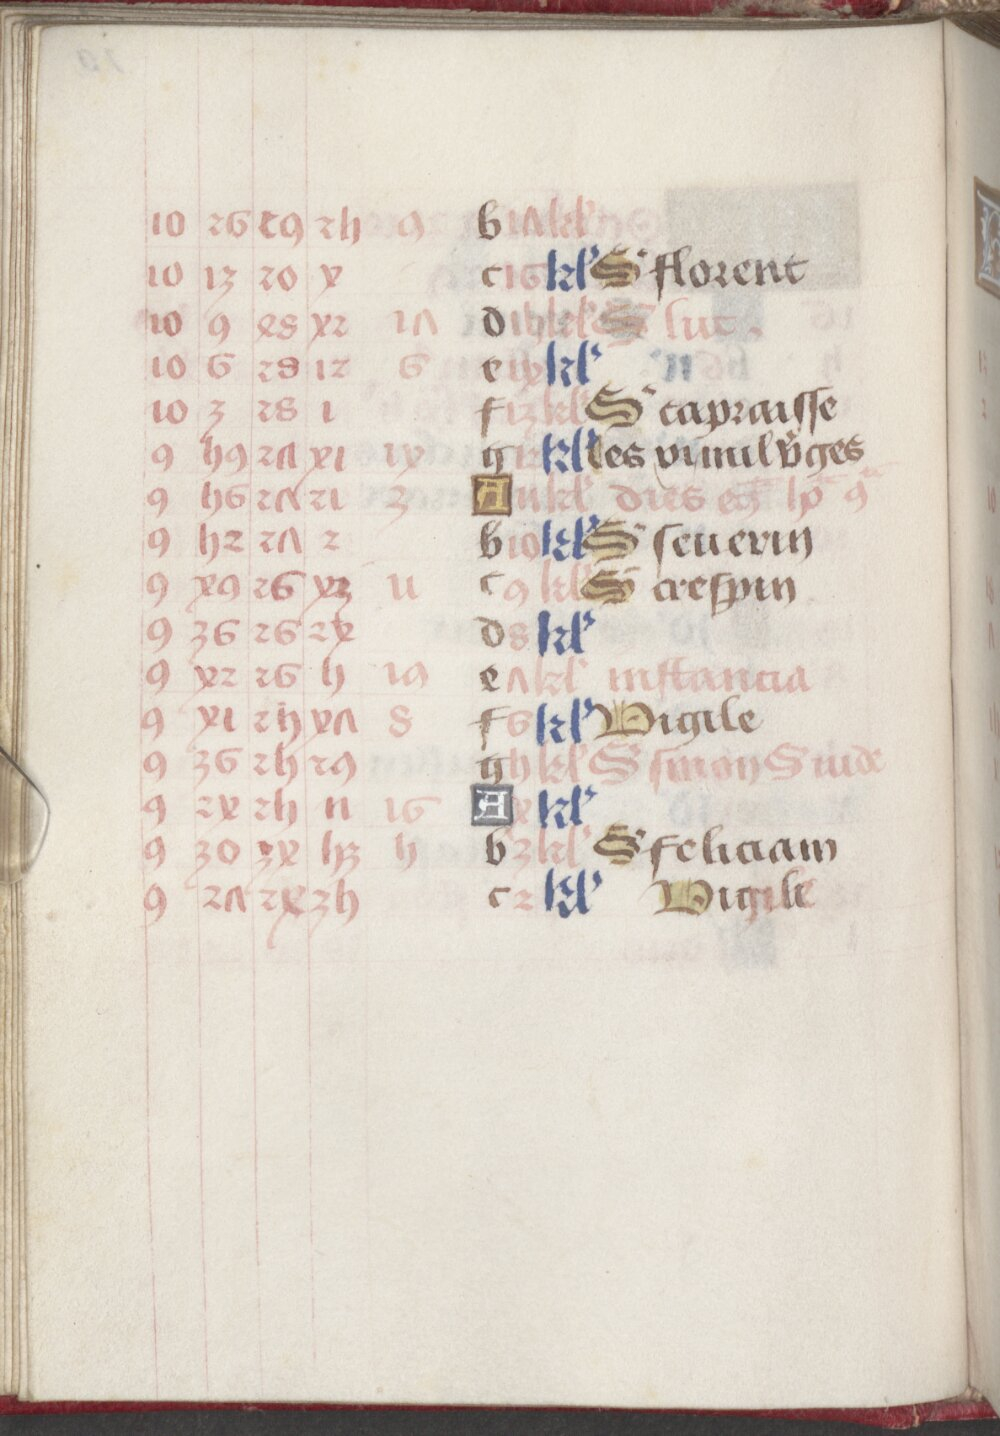 10 26 29 25 9 b 17 kl'
10 13 20 4 c 16 kl' S' florent
10 9 48 42 17 d 15 kl' S' luc .
10 6 28 12 6 e 14 kl'
10 3 28 1 f 13 kl' S' capraisse
9 59 27 41 14 g 12 kl' les xi mil v'ges
9 56 27 21 3 A 11 kl' dies eg ho 9
9 52 27 2 b 10 kl' S' seuerin
9 49 26 43 11 c 9 kl' S' crespin
9 36 26 24 d 8 kl'
9 42 26 5 19 e 7 kl' instancia
9 41 25 47 8 f 6 kl' Vigile
9 36 25 29 g 5 kl' S' simon S iude
9 24 25 11 16 A 4 kl'
9 30 34 53 5 b 3 kl' S' feliciani
9 27 24 35 c 2 kl' Vigile